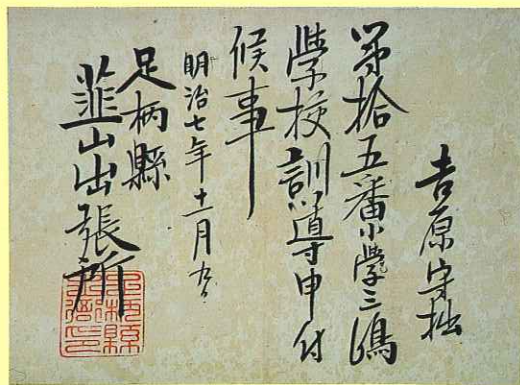 吉原守拙
第拾五番小學三嶋
學校訓導申付
候事
明治七年十一月九日
足柄縣
韮山出張所